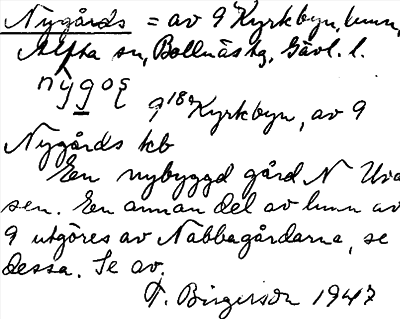 Nygårds = av 9 Kyrkbyn, hmn,
Alfta sn, Bollnäs tg, Gävl. l.
nygos
9 18o Kyrkbyn, av 9
Nygårds kb
En nybyggd gård N
sen. En annan del av hmn av
9 utgöres av Nabbagårdarna, se
dessa. Se av.
F. Birgerson 1947